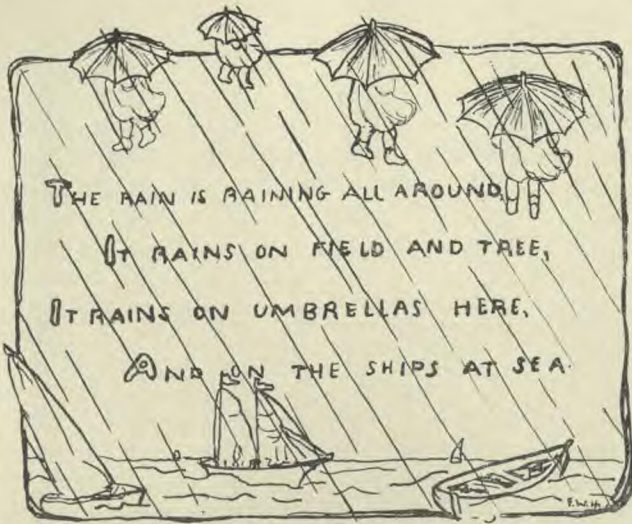 THE RAIN IS RAINING ALL AROUND,
IT RAINS ON FIELD AND TREE,
IT RAINS ON UMBRELLAS HERE,
AND ON THE SHIPS AT SEA.